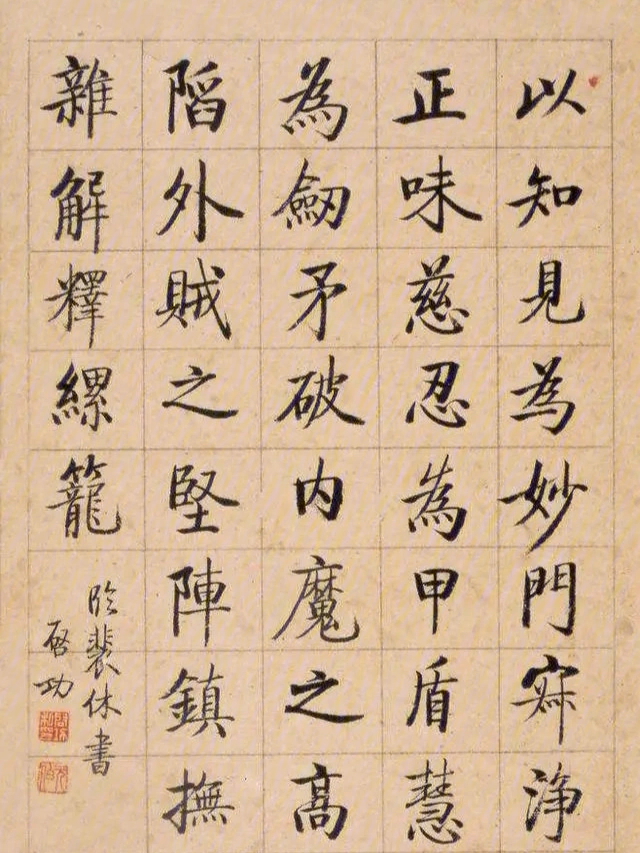 以知見為妙門寂淨
正味慈忍為甲盾慧
為劒矛破內魔之高
陷外賊之堅陣鎮撫
雜解釋縲籠
臨裴休書
啓功